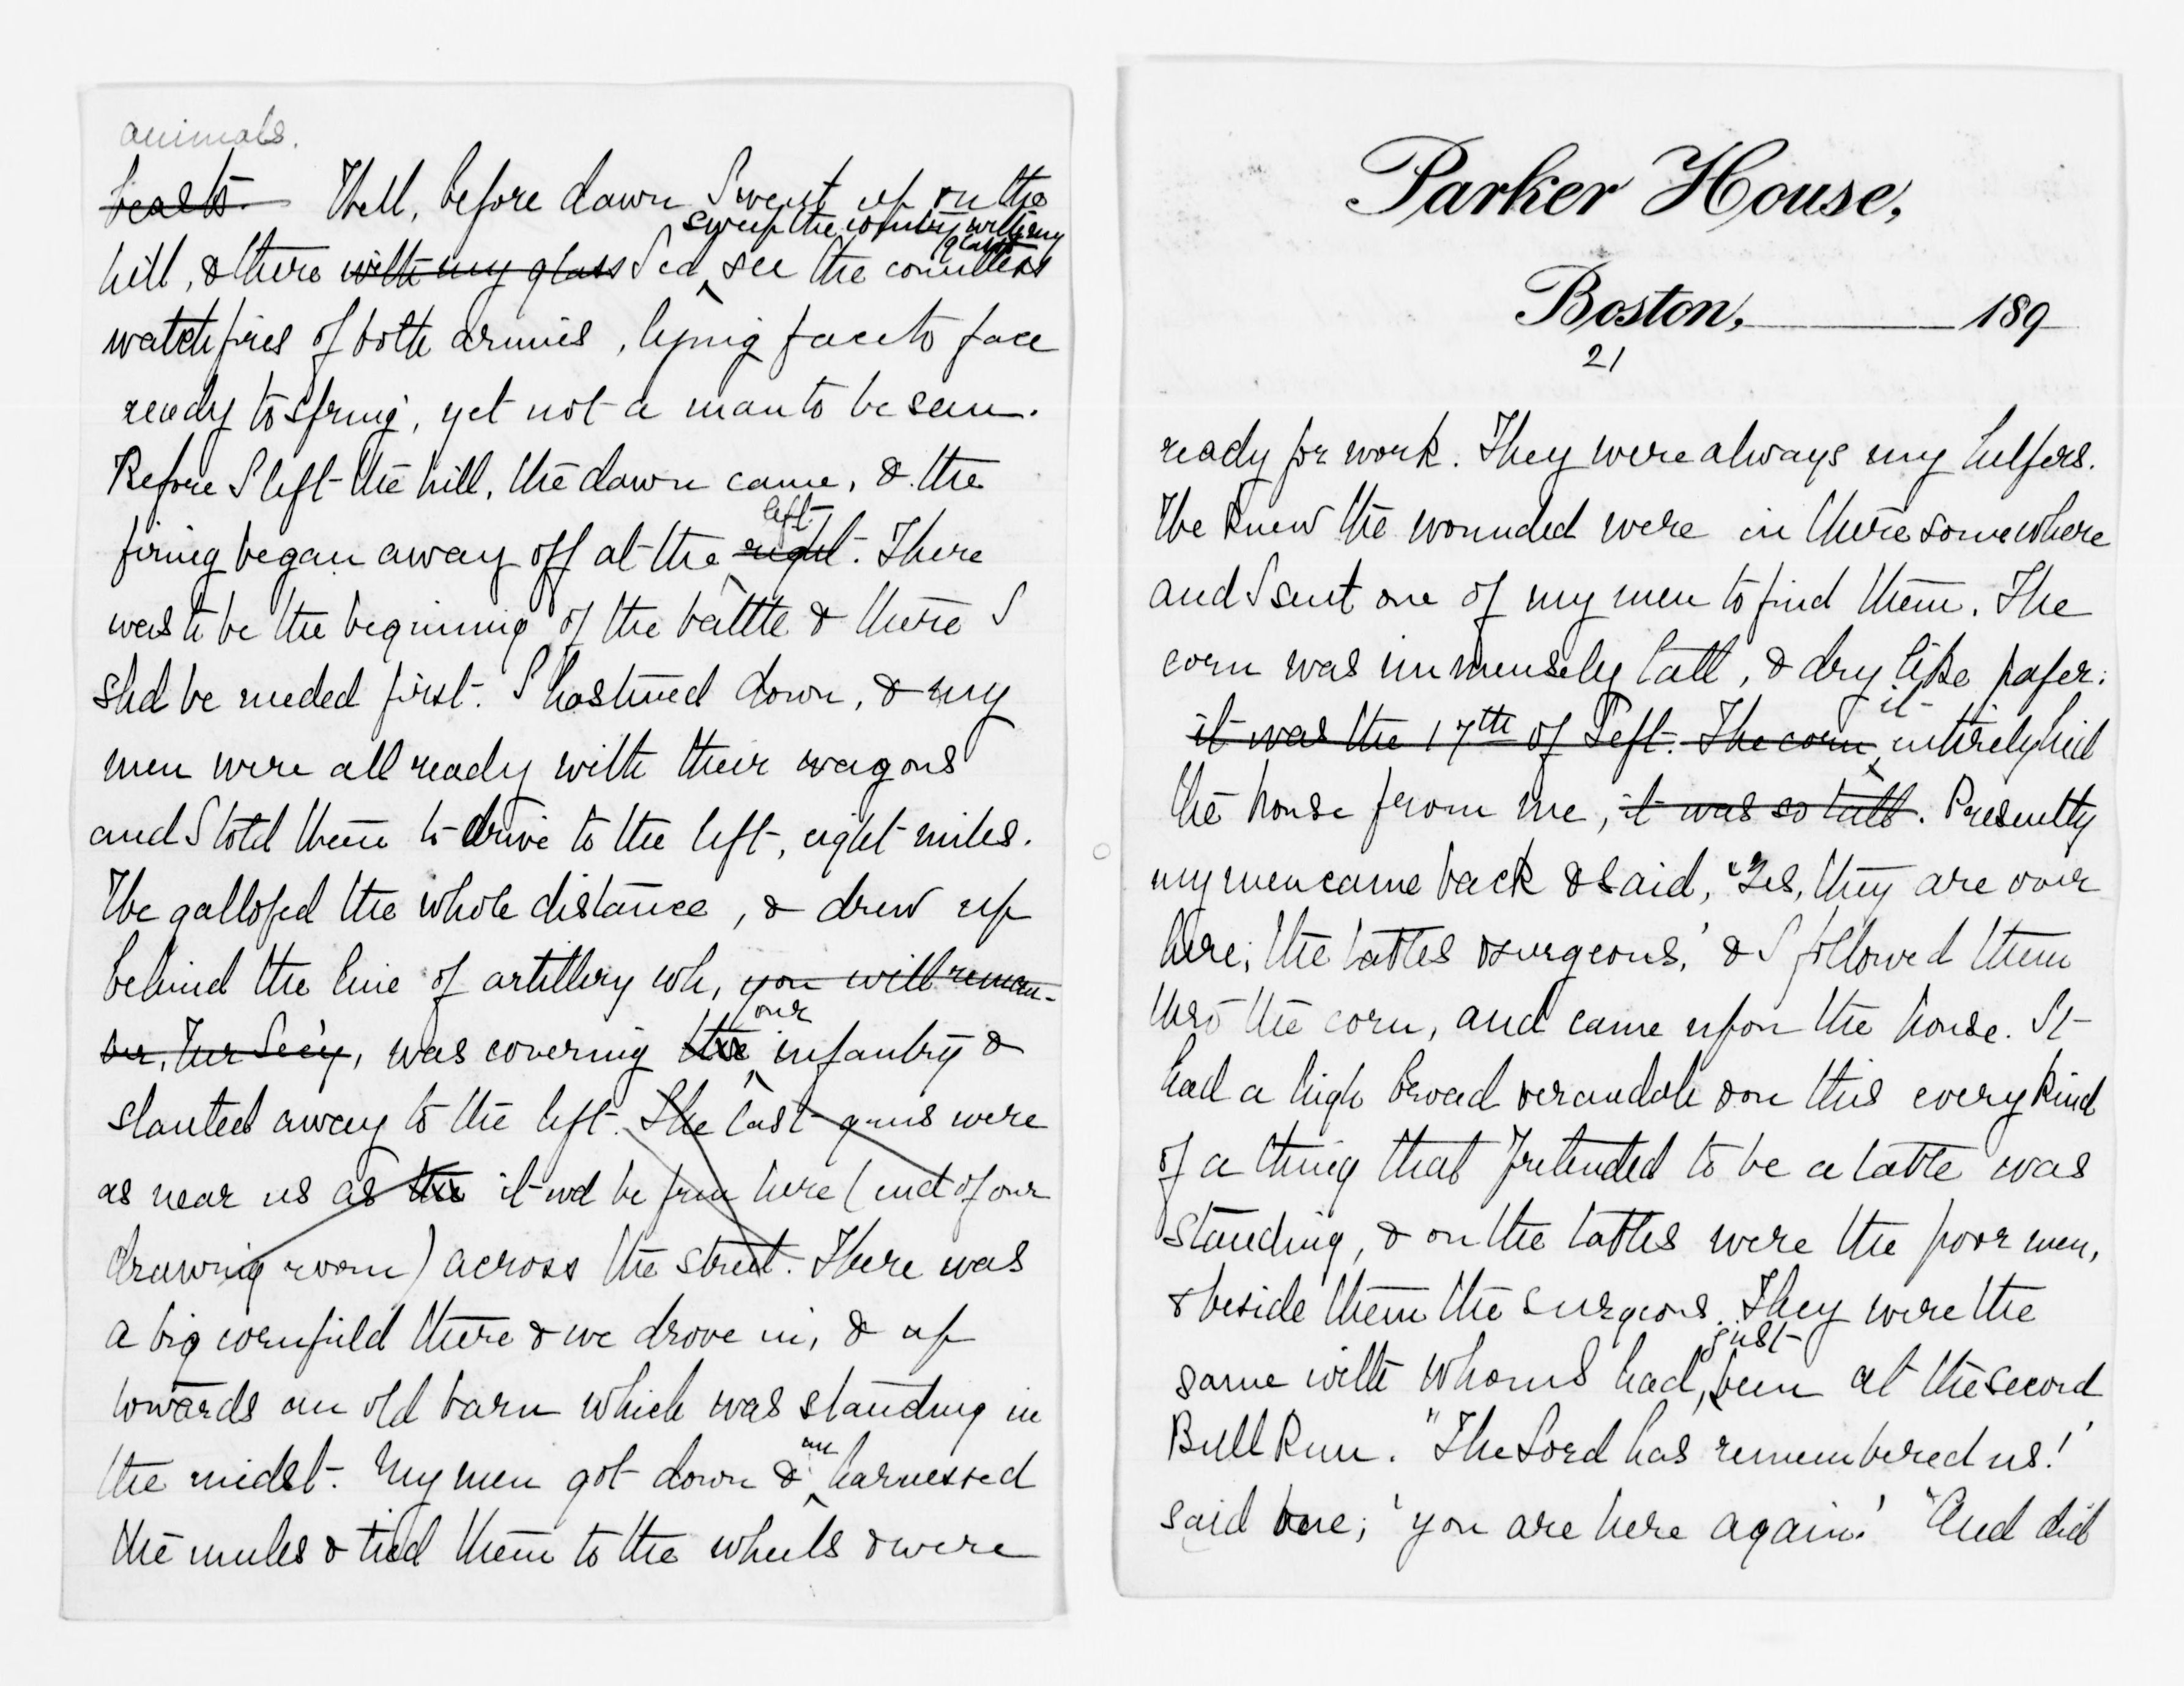 animals.
beasts. Well, before dawn I went up on the
sweep the country with my
glass &
hill, & there with my glass I cd see the countless
watchfires of both armies, lying face to face
ready to spring, yet not a man to be seen.
Before I left the hill, the dawn came, & the
left
firing began away off at the right. There
was to be the beginning of the battle & there I
shd be needed first. I hastened down, & my
men were all ready with their wagons
and I told them to drive to the left, eight miles.
We galloped the whole distance, & drew up
behind the line of artillery wh, you will remem-
our
ber, Fur Sec'y, was covering the infantry &
slanted away to the left. The last guns were
as near us as the it wd be from here (end of our
drawing room) across the street. There was
a big cornfield there & we drove in, & up
towards an old barn which was standing in
un
the midst. My men got down & harnessed
the mules & tied them to the wheels & were
Parker House,
Boston, 189
21
ready for work. They were always my helpers.
We knew the wounded were in there somewhere
and I sent one of my men to find them. The
corn was immensely tall, & dry like paper:
it
it was the 17th of Sept. The corn entirely hid
the house from me, it was so tall. Presently
my men came back & said, "Yes, they are over
here; the tables & surgeons,' & I followed them
thro the corn, and came upon the house. It
had a high broad verandah & on this every kind
of a thing that pretended to be a table was
standing, & on the tables were the poor men,
& beside them the surgeons. They were the
just
same with whom I had been at the second
Bull Run. "The Lord has remembered us!'
said one; 'you are here again.' 'And did